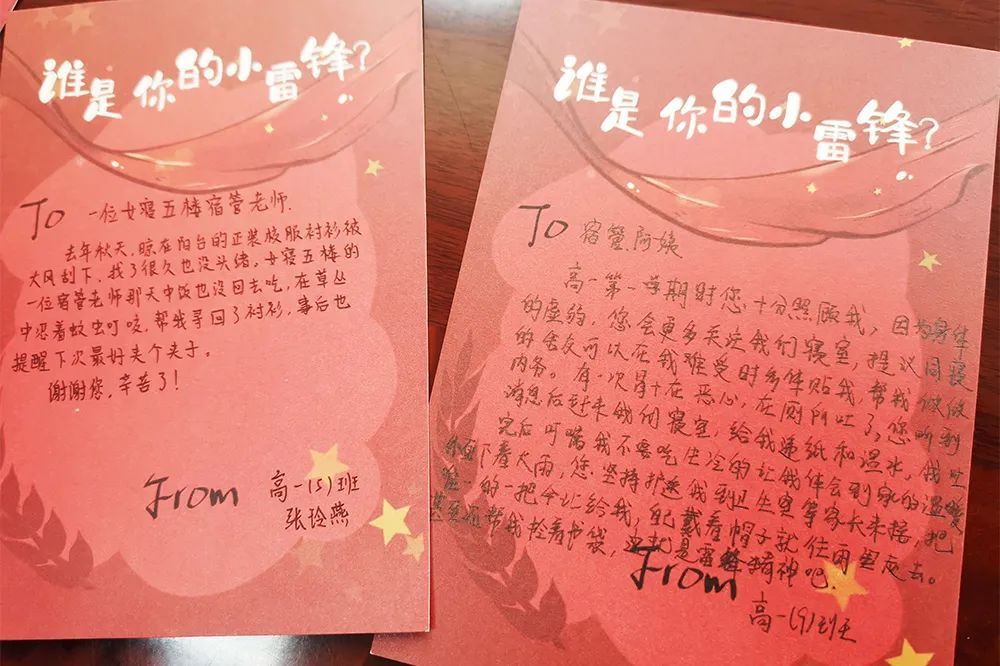 谁是你的小雷锋?
To 一位女寝五楼宿管老师.
去年秋天,晾在阳台的正装校服衬衫被
大风刮下,找了很久也没头绪,女寝五楼的
一位宿管老师那天中饭也没回去吃,在草丛
中忍着蚊虫叮咬,帮我寻回了衬衫,事后也
提醒下次最好夹个夹子。
谢谢您,辛苦了!
From 高一(5)班
张玲燕
谁是你的小雷锋?
To 宿管阿姨
高一第一学期时您十分照顾我,因为身体
的虚弱,您会更多关注我们寝室,提议同寝
的舍友可以在我难受时多体贴我,帮我做做
内务。有一次胃十在恶心,在厕所吐了,您听到
消息后赶来我们寝室,给我递纸和温水,我吐
完后叮嘱我不要吃生冷的让我体会到家的温暖
外面下着大雨,您坚持护送我到卫生室等家长来接,把
唯一的一把伞让给我,戴着帽子就往雨里走去。
甚至还帮我拎着书袋,这就是雷锋精神吧.
From
高一(9)班